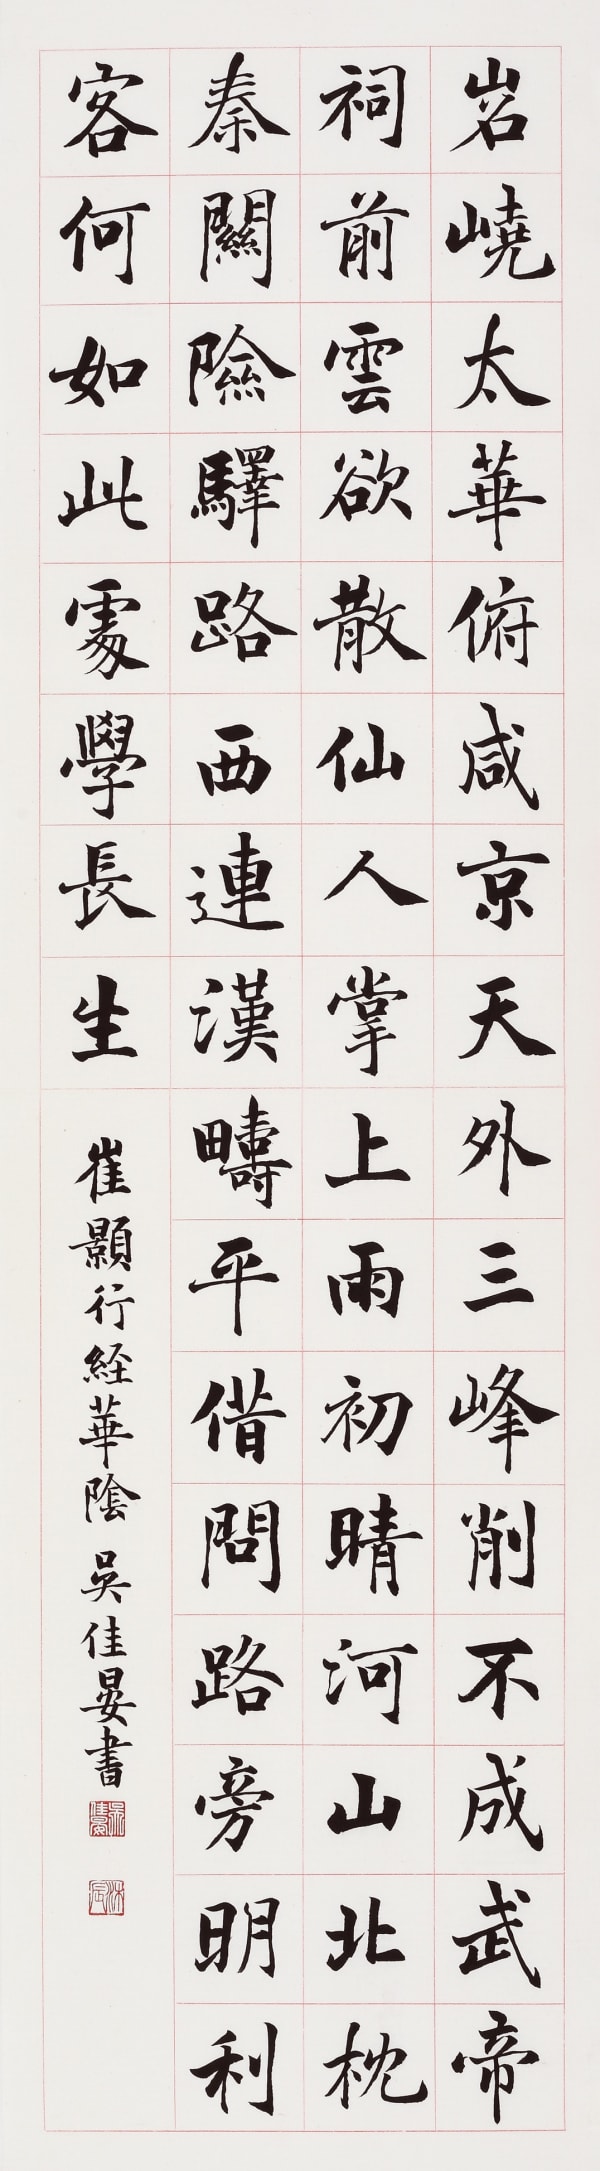 岧嶢太華俯咸京天外三峰削不成武帝
祠前雲欲散仙人掌上雨初晴河山北枕
秦關險驛路西連漢疇平借問路旁明利
客何如此處學長生
崔顥行経華陰 吳佳晏書